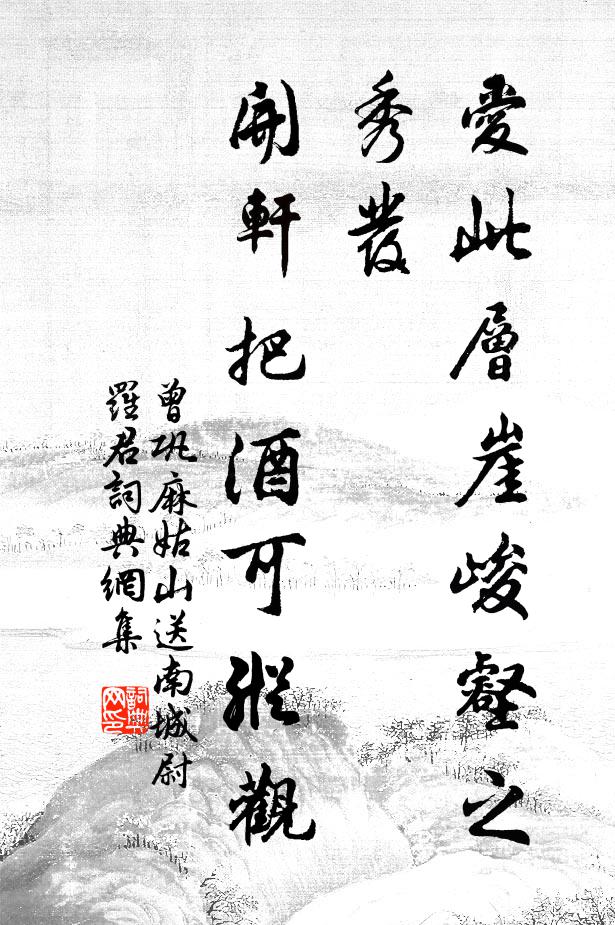 愛此層崖峻壑之
秀發
開軒把酒可縱觀
曾巩麻姑山送南城尉
羅君詞典網集
詞典网印